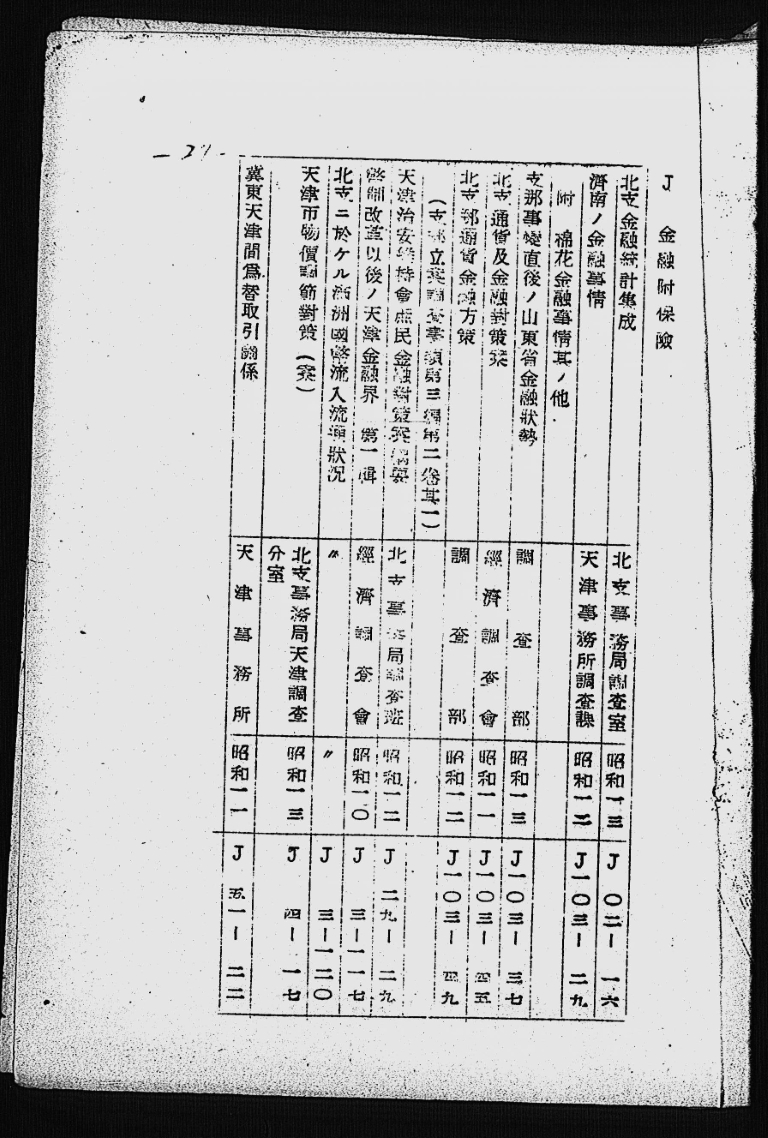 J 金融附保險
北支金融統計集成 北支事務局調査室 昭和一三 J〇二ー一六
濟南ノ金融事情 天津事務所調査課 昭和一二 J一〇三ー二九
附 棉花金融事情其ノ他
支那事變直後ノ山東省金融狀勢 調査部 昭和一三 J一〇三ー三七
北支通貨及金融對策案 經濟調査會 昭和一一 J一〇三ー四五
北支那通貨金融方策 調査部 昭和一二 J一〇三ー四九
(支那立案調査書類第三編第二卷其一)
天津治安維持會庶民金融對策案綱要 北支事務局調査班 昭和一二 J二九ー二九
幣制改革以後ノ天津金融界 第一輯 經濟調査會 昭和一〇 J三ー一一七
北支ニ於ケル滿洲國幣流入流通狀況 〃 〃 J三ー一二〇
天津市物價調節對策(案) 北支事務局天津調査分室 昭和一三 J四ー一七
冀東天津間爲替取引關係 天津事務所 昭和一一 J五一ー二二